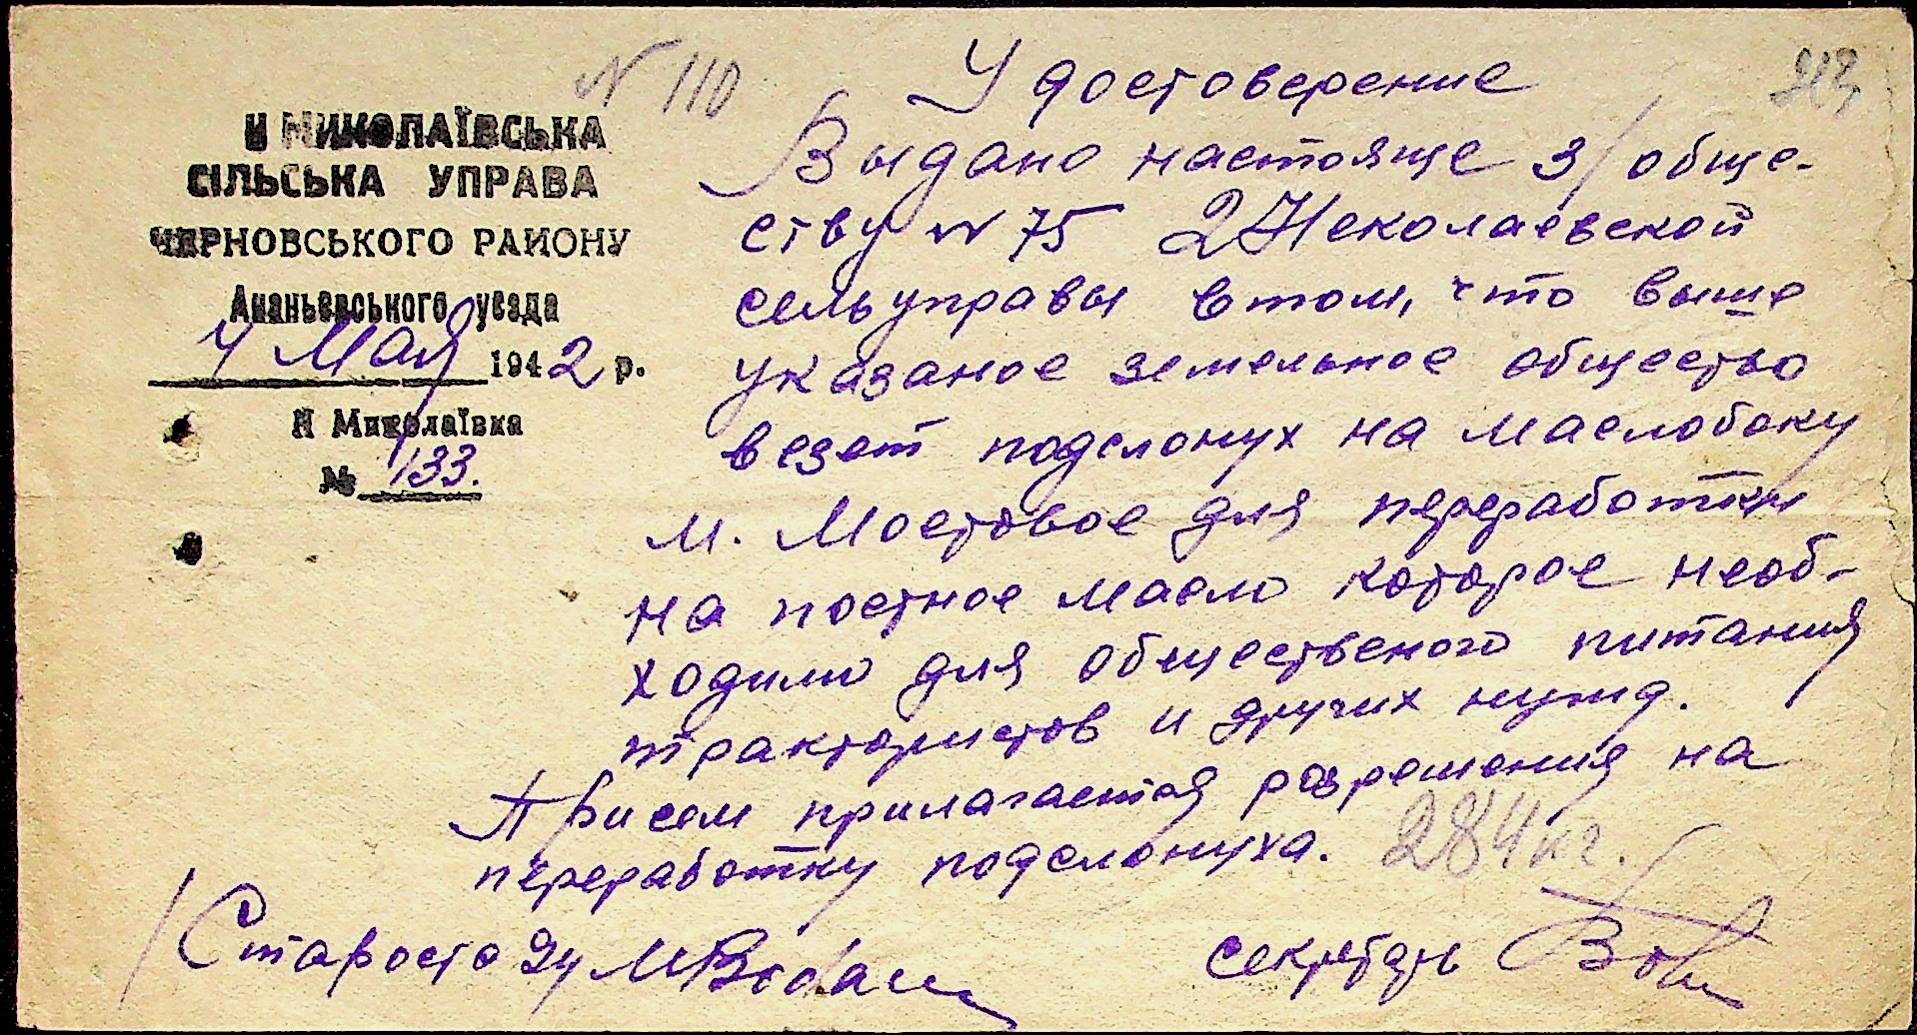 N 110
ІІ МИКОЛАЇВСЬКА
СІЛЬСЬКА УПРАВА
ЧЕРНОВСЬКОГО РАЙОНУ
Ананьевського уезда
4 Мая 1942 р.
ІІ Миколаївка
№ 133.
Удостоверение
Выдано настояще з/обще-
ству N 75 2 Неколаевской
сельуправы втом, что выше
указаное земельное общество
везет подслонух на маслобоку
м. Мостовое для переработки
на постное масло которое необ-
ходимо для общественого питания
трактористов и других нужд.
При сем прилагается розрешения на
переработку подслонуха. 284 кг.
Староста
секретарь